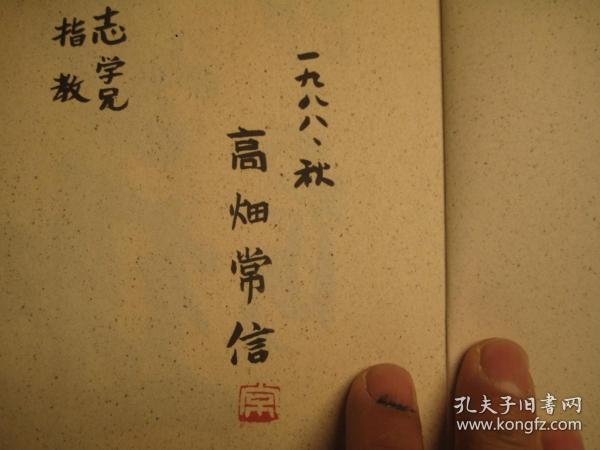 志学兄
指教
一九八八、秋
高畑常信
常
孔夫子旧书网
www.kongfz.com